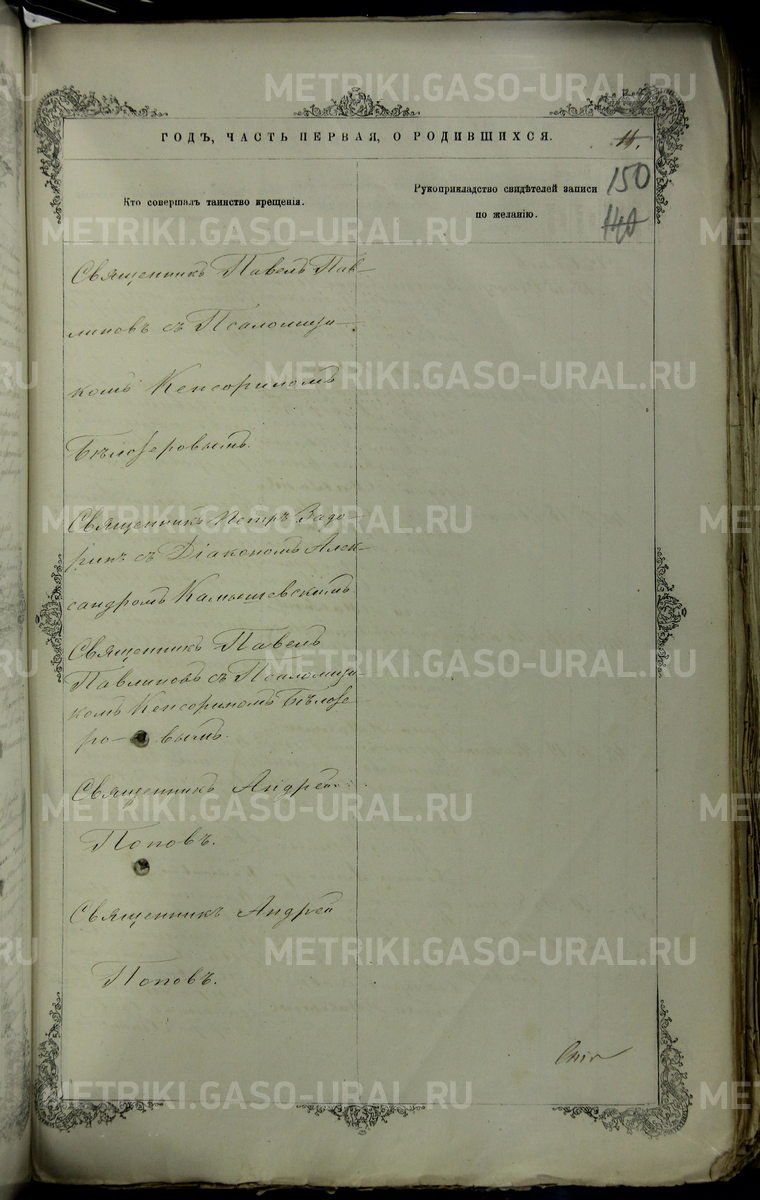 METRIKI.GASO-URAL.RU
ГОДЪ, ЧАСТЬ ПЕРВАЯ, О РОДИВШИХСЯ.
11.
Кто совершалъ таинство крещенія.
Рукоприкладство свидѣтелей записи
по желанію.
150
140
Священникъ Павелъ Пав-
линовъ съ Псаломщи-
комъ Кенсориномъ
Бѣлозеровымъ.
Священникъ Петръ Задо-
ринъ съ Діакономъ Алек-
сандромъ Камышевскимъ.
Священникъ Павелъ
Павлиновъ съ Псаломщи-
комъ Кенсориномъ Бѣлозе-
ро-вымъ.
Священникъ Андрей
Поповъ.
Священникъ Андрей
Поповъ.